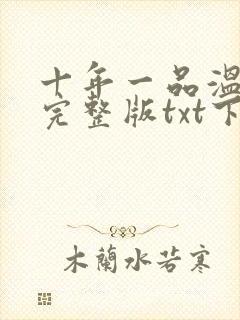 十年一品温
完整版txt下
木蘭水若寒